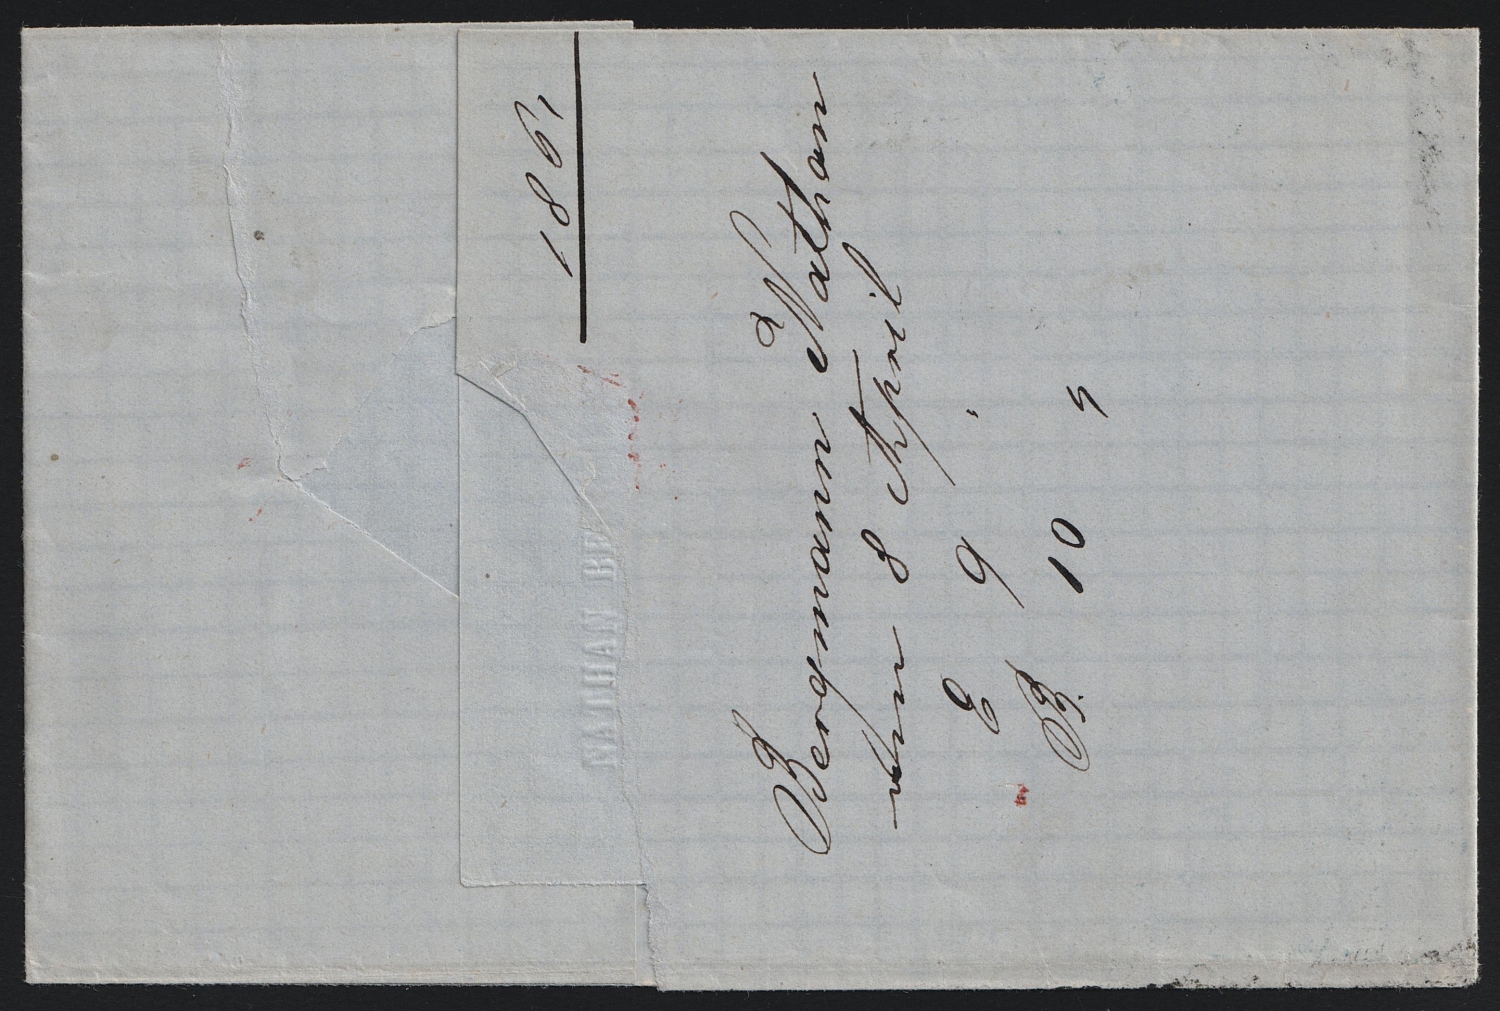 1861
Bergmann & Nathan
8 April
E 9 "
B. 10 "
NATHAN BE